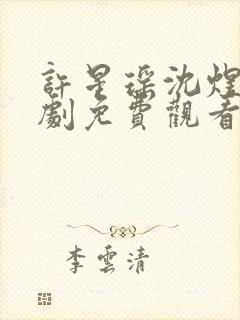 許星瑤沈煜
劇免費觀看
李雲清